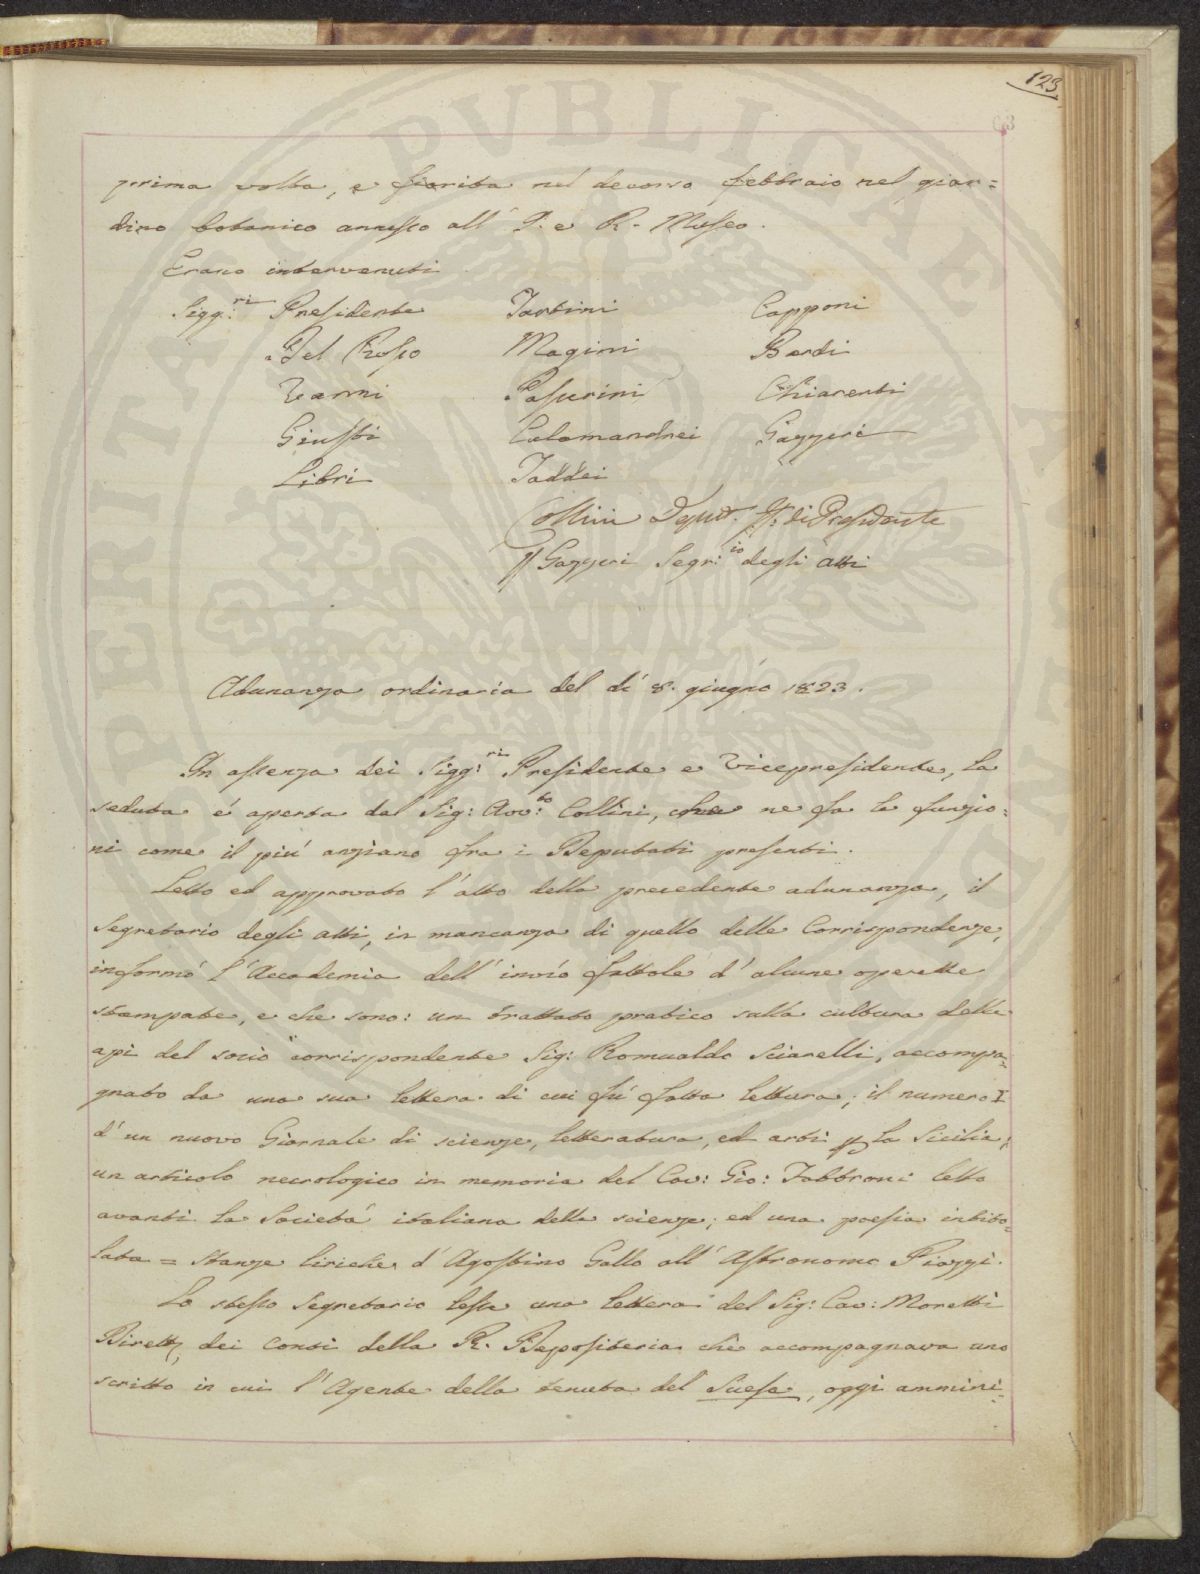 123
63
prima volta, e fiorita nel decorso febbraio nel giar=
dino botanico annesso all' I. e R. Museo.
Erano intervenuti
Sigg:ri Presidente Tartini Capponi
Del Rosso Magini Bardi
Vanni Passerini Chiarenti
Giusti Calamandrei Gazzeri
Libri Taddei
Collini Deput. ff. di Presidente
Gazzeri Segr:io degli atti
Adunanza ordinaria del dì 8. giugno 1823.
In assenza dei Sigg:ri Presidente e Vicepresidente, la
seduta é aperta dal Sig: Avv:to Collini, che ne fa le funzio=
ni come il piú anziano fra i Deputati presenti.
Letto ed approvato l'atto della precedente adunanza, il
Segretario degli atti, in mancanza di quello delle Corrispondenze,
informó l'Accademia dell'invío fattole d'alcune operette
stampate, e che sono: un trattato pratico sulla cultura delle
api del socio corrispondente Sig: Romualdo Sciarelli, accompa=
gnato da una sua lettera di cui fú fatta lettura; il numero I
d'un nuovo Giornale di scienze, letteratura, ed arti p la Sicilia;
un articolo necrologico in memoria del Cav: Gio: Fabbroni letto
avanti la Societá italiana delle scienze; ed una poesia intito=
lata = Stanze liriche d'Agostino Gallo all'Astronomo Piazzi.
Lo stesso Segretario lesse una lettera del Sig: Cav: Moretti
Dirett, dei Conti della R. Depositeria che accompagnava uno
scritto in cui l'Agente della tenuta del Suese, oggi ammini=
PVBLICAE